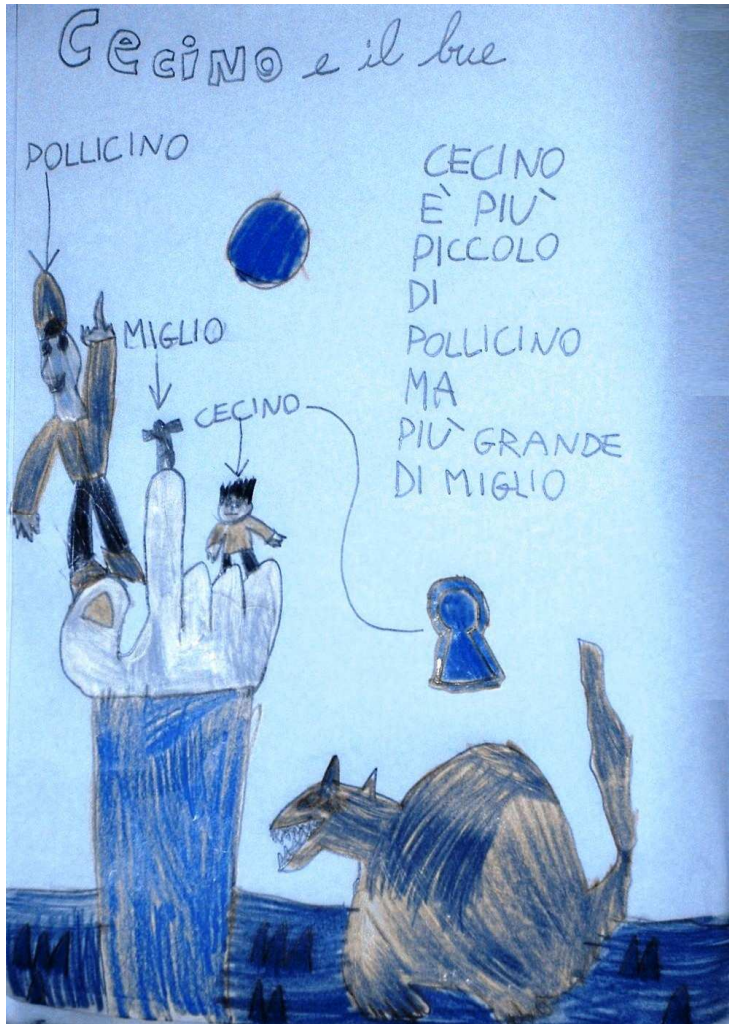 CeciNo e il bue
POLLICINO
MIGLIO
CECINO
CECINO
È PIÙ
PICCOLO
DI
POLLICINO
MA
PIÙ GRANDE
DI MIGLIO